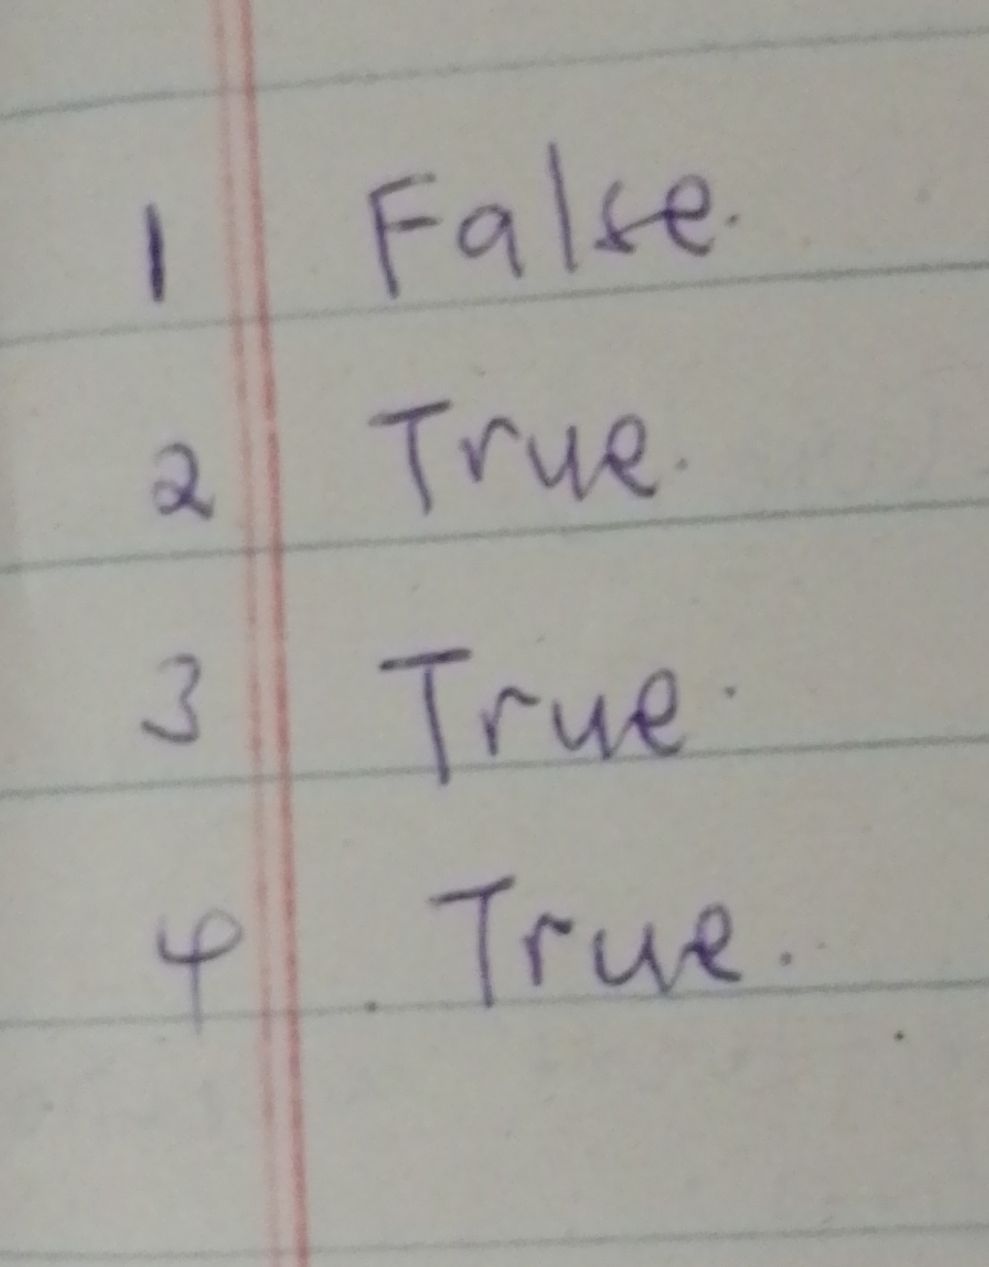 1 False.
2 True.
3 True.
4 True.